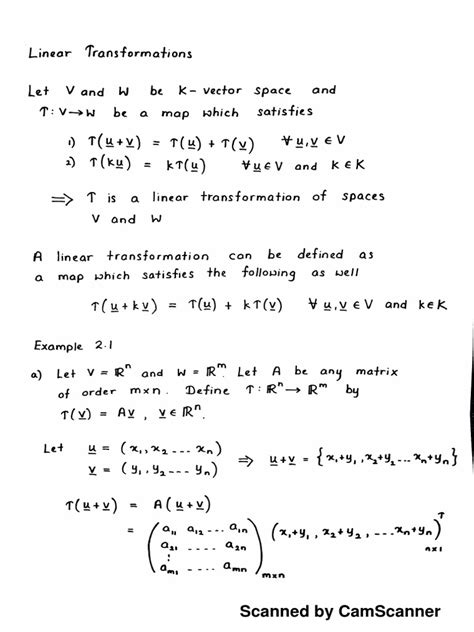 Linear Transformations
Let V and W be K-vector space and
T : V→W be a map which satisfies
1) T(u+v) = T(u) + T(v) ∀ u,v ∈ V
2) T(ku) = kT(u) ∀ u ∈ V and k ∈ K
⟹ T is a linear transformation of spaces
V and W
A linear transformation can be defined as
a map which satisfies the following as well
T(u + kv) = T(u) + kT(v) ∀ u,v ∈ V and k∈K
Example 2.1
a) Let V = ℝⁿ and W = ℝᵐ. Let A be any matrix
of order m×n. Define T : ℝⁿ → ℝᵐ by
T(v) = Av , v ∈ ℝⁿ.
Let u = (x₁, x₂ --- xₙ) ⟹ u+v = {x₁+y₁, x₂+y₂ --- xₙ+yₙ}
v = (y₁, y₂ --- yₙ)
T(u+v) = A(u+v)
= (a₁₁ a₁₂ .... a₁ₙ
a₂₁ .... a₂ₙ
⋮
aₘ₁ .... aₘₙ)ₘₓₙ (x₁+y₁, x₂+y₂, --- xₙ+yₙ)ᵀ n×1
Scanned by CamScanner